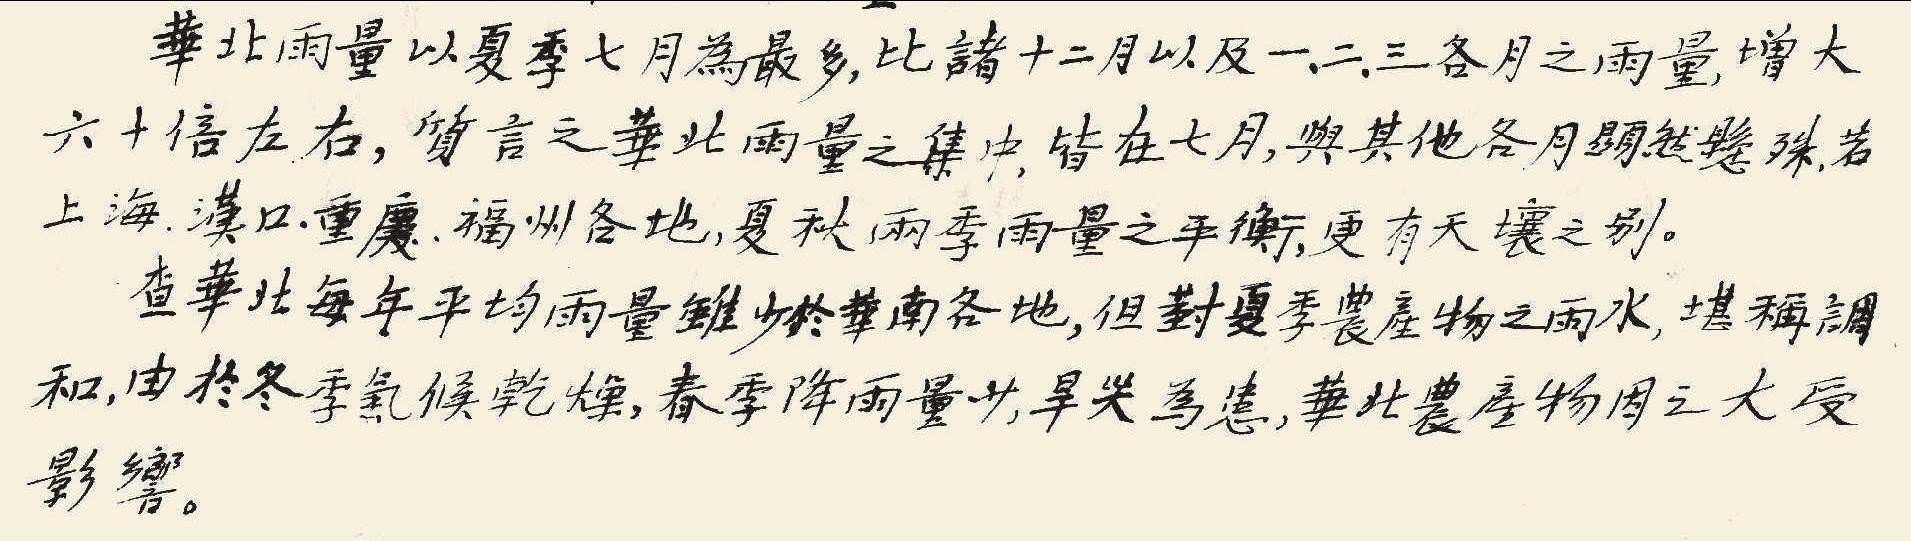 華北雨量以夏季七月為最多,比諸十二月以及一.二.三各月之雨量,增大
六十倍左右,質言之華北雨量之集中,皆在七月,與其他各月顯然懸殊.若
上海.漢口.重慶.福州各地,夏秋兩季雨量之平衡,更有天壤之別。
查華北每年平均雨量雖少於華南各地,但對夏季農產物之雨水,堪稱調
和,由於冬季氣候乾燥,春季降雨量少,旱災為患,華北農產物因之大受
影響。